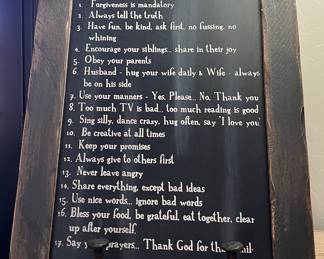 1. Forgiveness is mandatory
2. Always tell the truth
3. Have fun, be kind, ask first, no fussing, no
whining
4. Encourage your siblings.. share in their joy
5. Obey your parents
6. Husband - hug your wife daily & Wife - always
be on his side
7. Use your manners - Yes, Please.. No, Thank you
8. Too much TV is bad.. too much reading is good
9. Sing silly, dance crazy, hug often, say "I love you
10. Be creative at all times
11. Keep your promises
12. Always give to others first
13. Never leave angry
14. Share everything, except bad ideas
15. Use nice words... ignore bad words
16. Bless your food, be grateful, eat together, clear
up after yourself
17. Say prayers... Thank God for